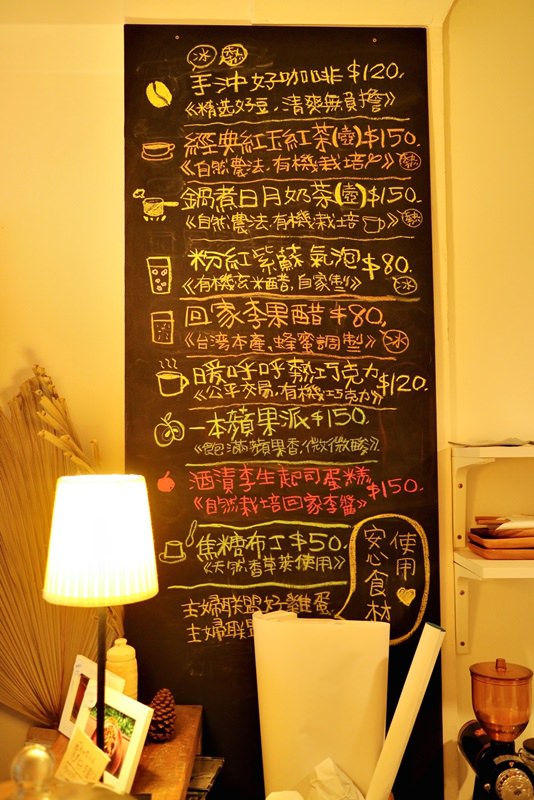 冰 熱
手沖好咖啡 $120.
《精选好豆，清爽無負擔》
經典紅玉紅茶(壺)$150.
《自然農法.有機栽培》熱
鍋煮日月奶茶(壺)$150.
《自然.農法.有機栽培》熱
粉紅紫蘇氣泡$80.
《有機玄米醋，自家製》冰
回家李果醋$80.
《台湾本產、蜂蜜調製》冰
暖呼呼熱巧克力$120.
《公平交易,有機巧克力》
一本蘋果派$150.
《飽滿蘋果香,微微酸》
酒漬李生起司蛋糕$150.
《自然栽培回家李醬》
焦糖布丁$50.
《天然香草莢使用》
使用
安心食材
主婦联盟好雞蛋
主婦联盟